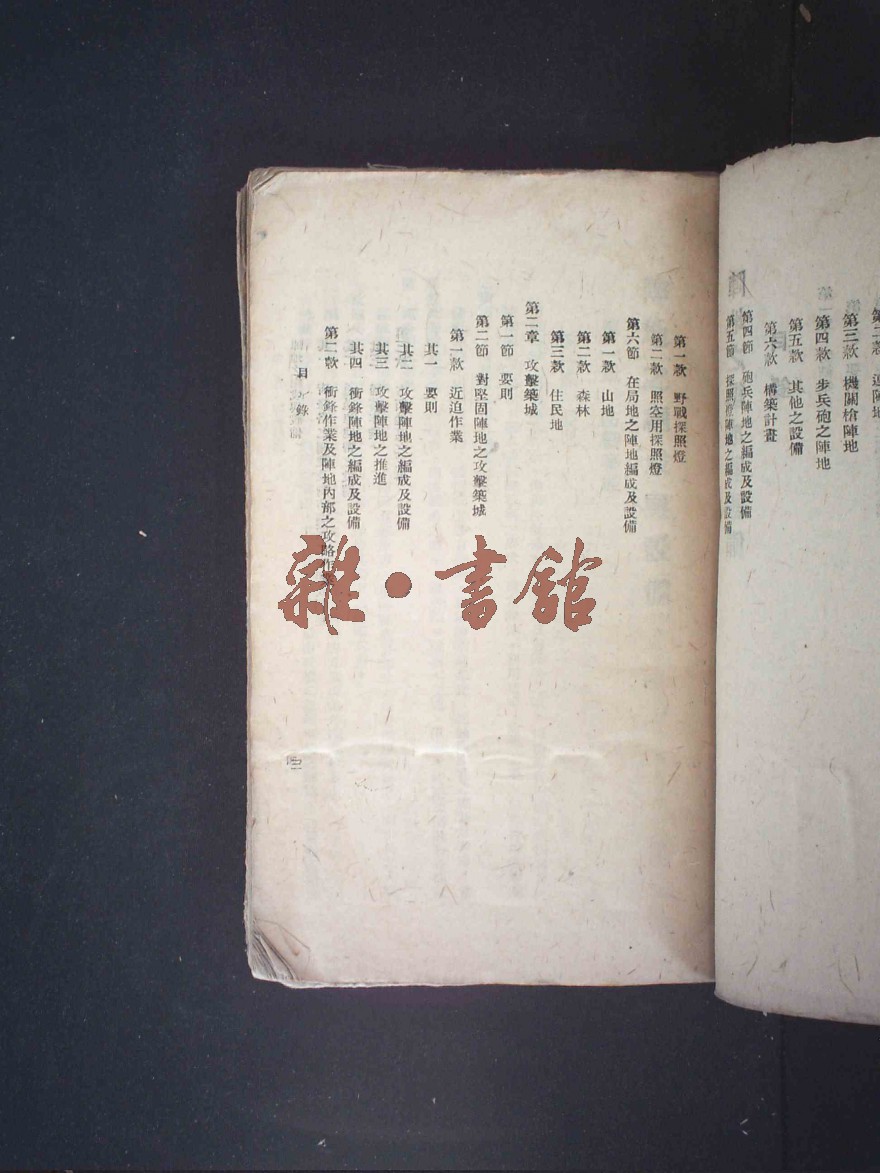 第三款 機關槍陣地
第四款 步兵砲之陣地
第五款 其他之設備
第六款 構築計畫
第四節 砲兵陣地之編成及設備
第五節 探照燈陣地之編成及設備
第一款 野戰探照燈
第二款 照空用探照燈
第六節 在局地之陣地編成及設備
第一款 山地
第二款 森林
第三款 住民地
第二章 攻擊築城
第一節 要則
第二節 對堅固陣地之攻擊築城
第一款 近迫作業
其一 要則
其二 攻擊陣地之編成及設備
其三 攻擊陣地之推進
其四 衝鋒陣地之編成及設備
第二款 衝鋒作業及陣地內部之攻略作
目錄
雜·書館